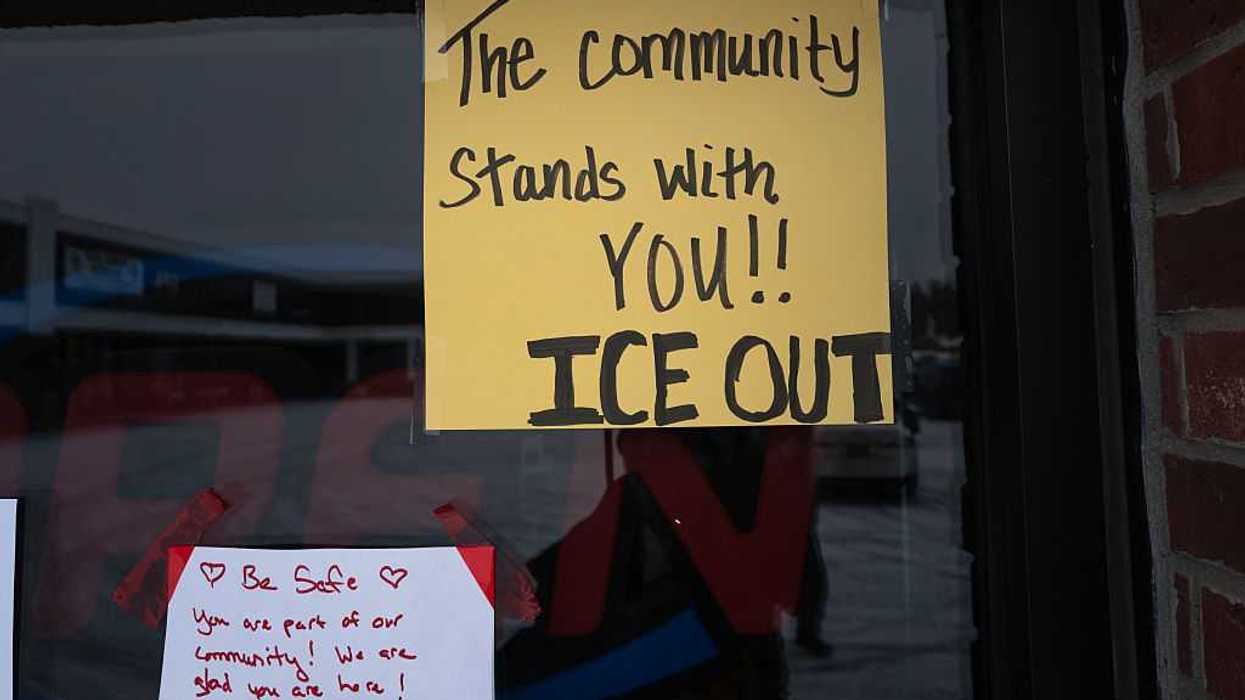 The community
Stands with
YOU!!
ICE OUT
OPEN
♡ Be Safe ♡
You are part of our
community! We are
glad you are here!